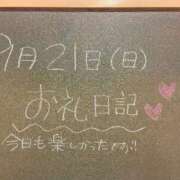 9月21日(日)
お礼日記
今日も楽しかったです!!